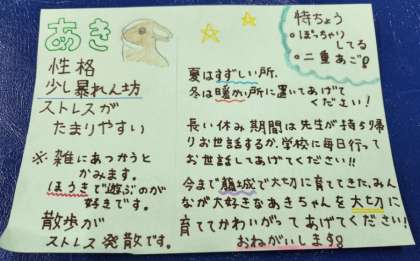 あき
性格
少し暴れん坊
ストレスが
たまりやすい
※雑にあつかうと
かみます。
ほうきで遊ぶのが
好きです。
散歩が
ストレス発散です。
特ちょう
・ぽっちゃり
してる
・二重あご
夏はすずしい所、
冬は暖かい所に置いてあげて
ください！
長い休み期間は先生が持ち帰
りお世話するか、学校に毎日行って
お世話してあげてください！！
今まで籠城で大切に育ててきた、みん
なが大好きなあきちゃんを大切に
育ててかわいがってあげてください！
おねがいします